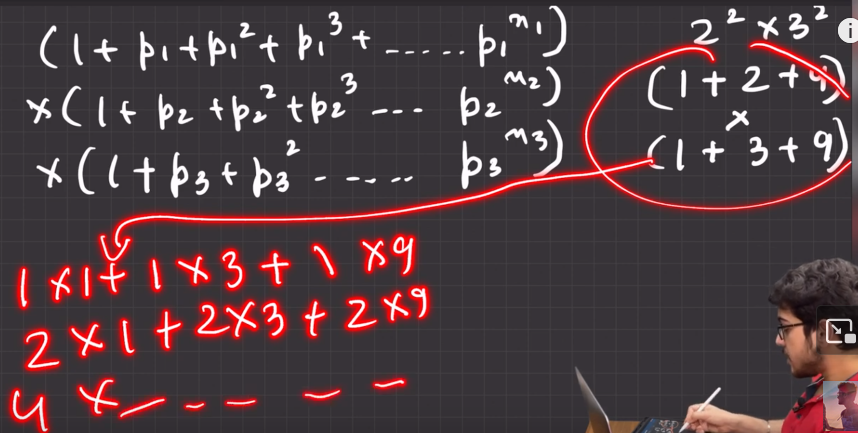 (1 + p₁ + p₁² + p₁³ + ..... p₁ⁿ¹)
×(1 + p₂ + p₂² + p₂³ ... p₂ⁿ²)
×(1 + p₃ + p₃² ..... p₃ⁿ³)
2² × 3²
(1 + 2 + 4)
×
(1 + 3 + 9)
1 × 1 + 1 × 3 + 1 × 9
2 × 1 + 2 × 3 + 2 × 9
4 × _ _ _ _ _